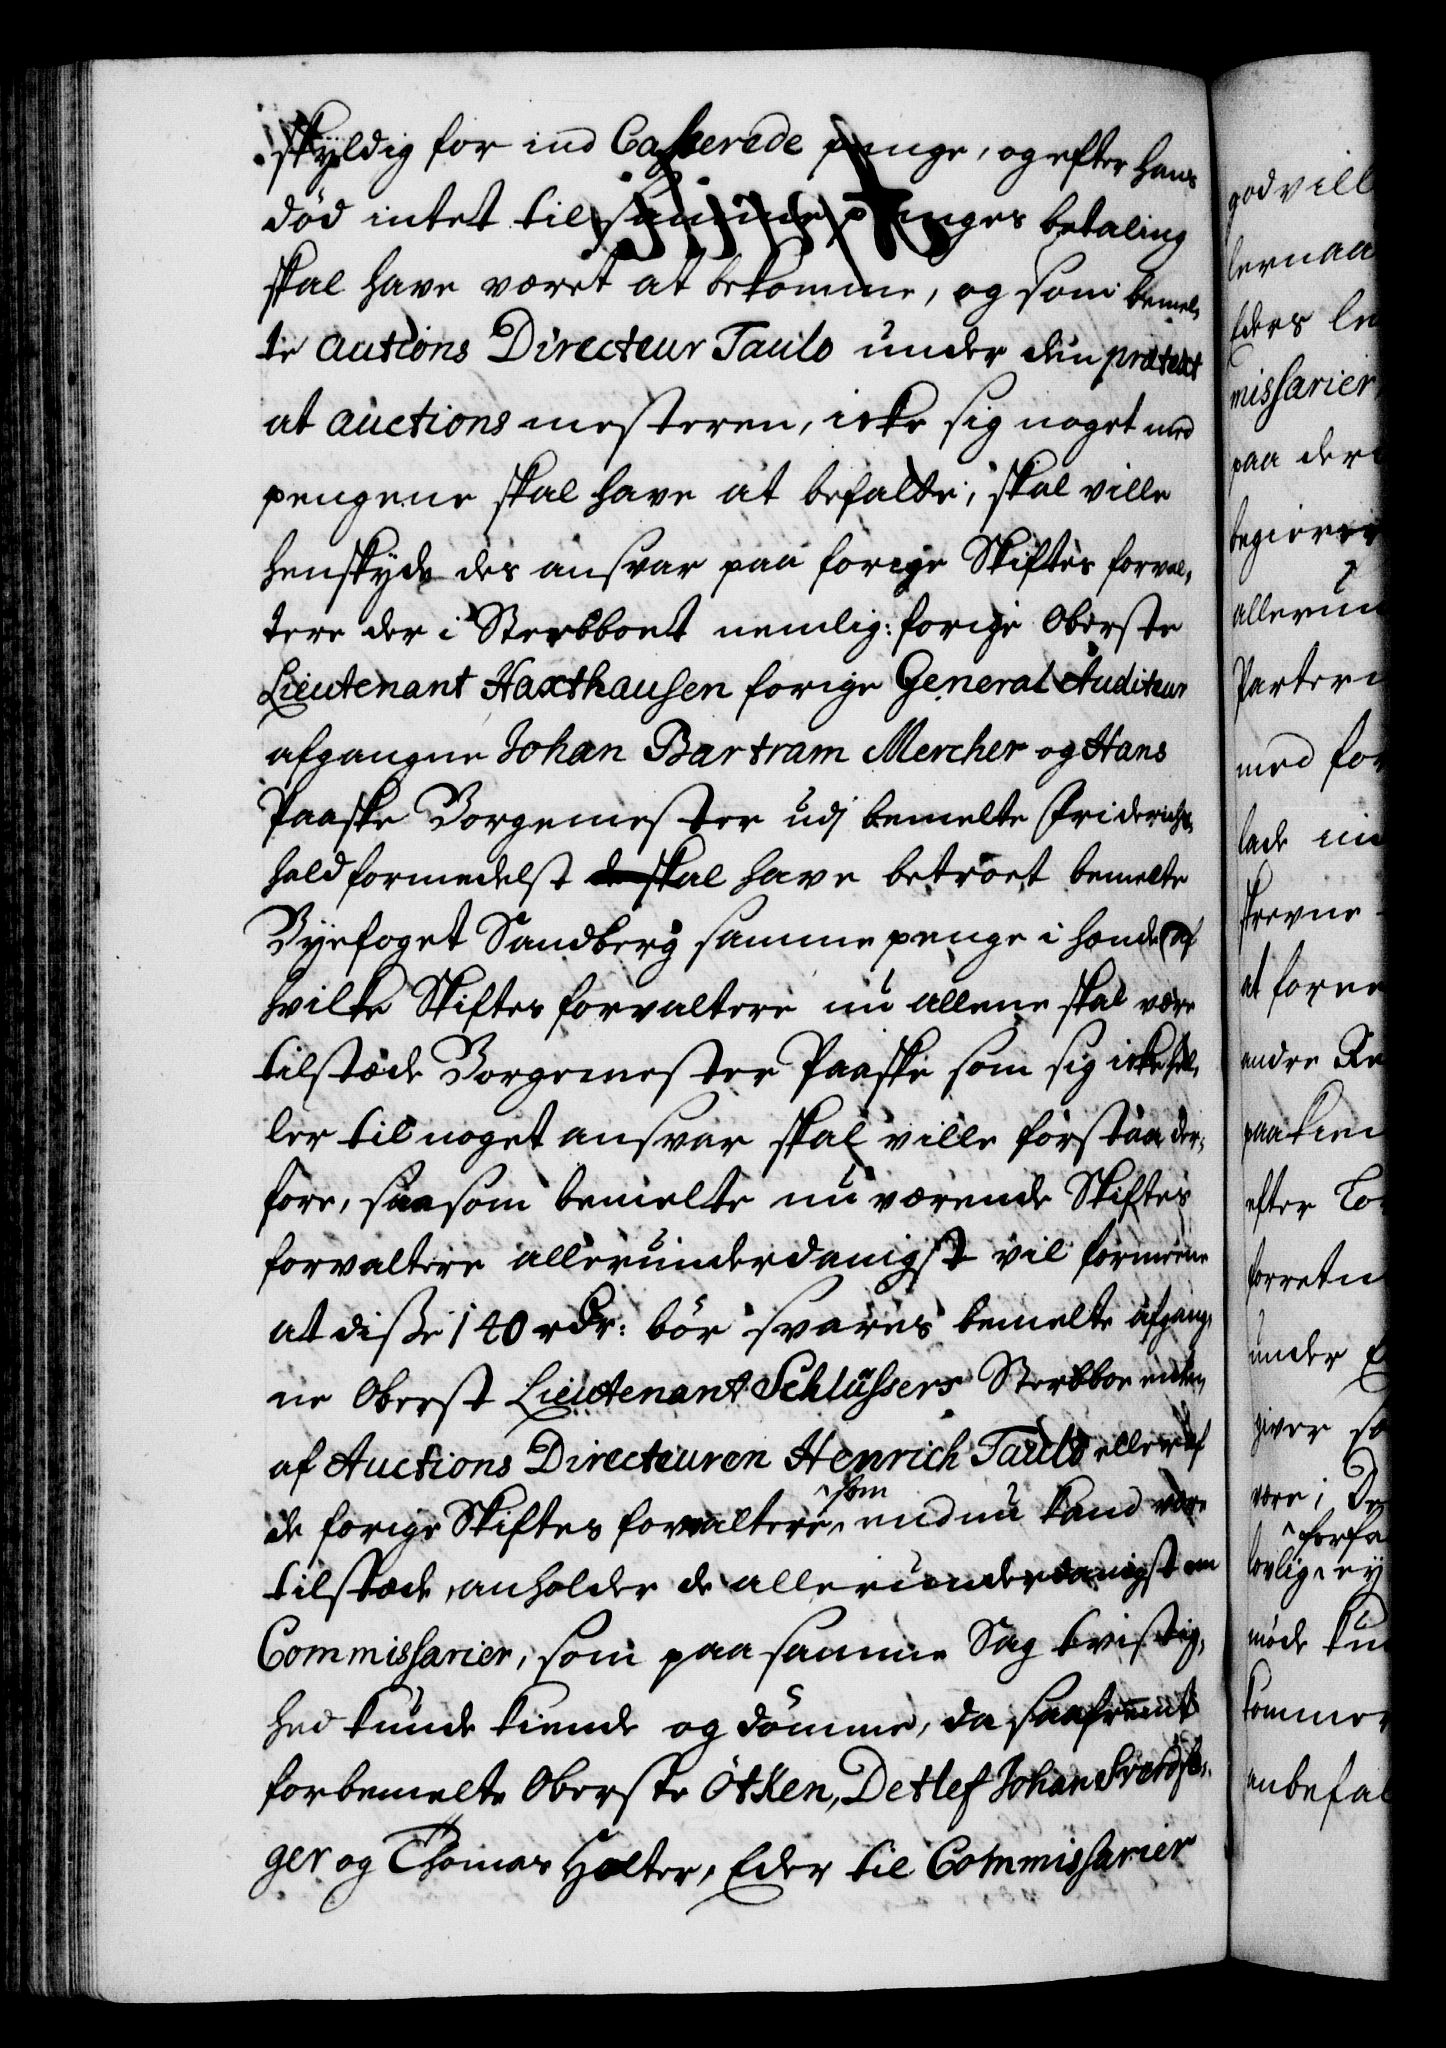 skyldig for ind Casserede penge, og efter hans
död intet til samme penges betaling
skal have været at bekomme, og som bemel,
te auctions Directeur Taulo under den prætext
at auctions mesteren, icke sig noget med
pengene skal have at befatte, skal ville
henskyde des ansvar paa forige Skiftes forval,
tere der i Sterbboet nemlig: forige Oberste
Lieutenant Haxthausen forige General Auditeur
afgangne Johan Bartram Mercher og Hans
Paaske Borgemester udj bemelte Friderichs,
hald formedelst de skal have betroet bemelte
Byefoget Sandberg samme penge i hænde, af
hvilke Skiftes forvaltere nu allene skal være
tilstæde Borgemester Paaske som sig icke hel,
ler til noget ansvar skal ville forstaa der,
fore, saasom bemelte nu værende Skiftes
forvaltere allerunderdanigst vil formeene
at disse 140 rdr: bör svares bemelte afgang,
ne Oberst Lieutenant Schlüssers Sterbboe enten
af Auctions Directeuren Henrich Taulo eller af
de forige Skiftes forvaltere, som endnu kand være
tilstæde, anholder de allerunderdanigst om
Commissarier, som paa samme Sag tvistig,
hed kunde kiende og dömme, da saafremt
forbemelte Oberste Ötken, Detlef Johan
ger og Thomas Holter, Eder til Commissarier
godvill
lernaa
Eders
missarier
paa der
begierer
allerun
Parter
med for
lade
skrevne
at forne
andre
paakien
efter
forretn
under
giver
være i
forfa
lovlig, ey
möde
kommer
anbefal